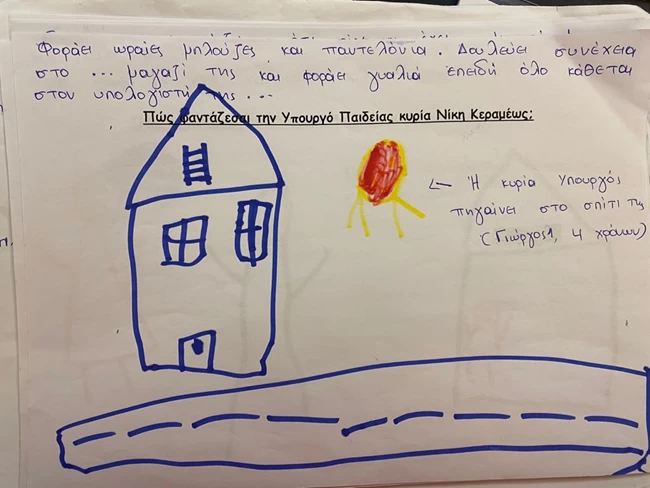 Φοράει ωραίες μπλούζες και παντελόνια. Δουλεύει συνέχεια
στο ... μαγαζί της και φοράει γυαλιά επειδή όλο κάθεται
στον υπολογιστή της...
Πώς φαντάζεσαι την Υπουργό Παιδείας κυρία Νίκη Κεραμέως;
← Ή κυρία Υπουργός
πηγαίνει στο σπίτι της
(Γιώργος1, 4 χρόνων)